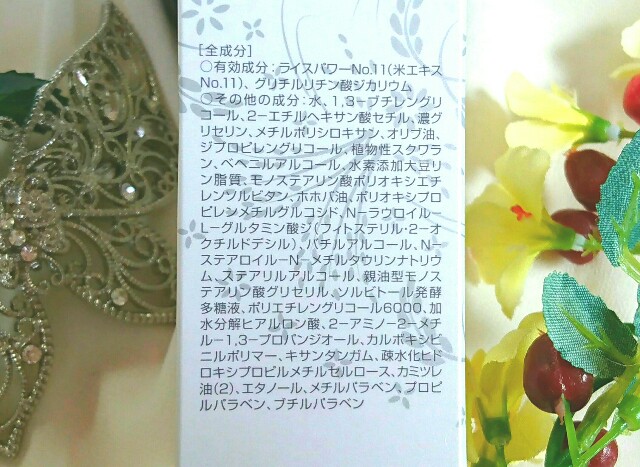 [全成分]
○有効成分:ライスパワーNo.11(米エキス
No.11)、グリチルリチン酸ジカリウム
○その他の成分:水、1,3-ブチレングリ
コール、2-エチルヘキサン酸セチル、濃グ
リセリン、メチルポリシロキサン、オリブ油、
ジプロピレングリコール、植物性スクワラ
ン、ベヘニルアルコール、水素添加大豆リ
ン脂質、モノステアリン酸ポリオキシエチ
レンソルビタン、ホホバ油、ポリオキシプロ
ピレンメチルグルコシド、N-ラウロイル-
L-グルタミン酸ジ(フィトステリル・2-オ
クチルドデシル)、バチルアルコール、N-
ステアロイル-N-メチルタウリンナトリウ
ム、ステアリルアルコール、親油型モノス
テアリン酸グリセリル、ソルビトール発酵
多糖液、ポリエチレングリコール6000、加
水分解ヒアルロン酸、2-アミノ-2-メチ
ル-1,3-プロパンジオール、カルボキシビ
ニルポリマー、キサンタンガム、疎水化ヒド
ロキシプロピルメチルセルロース、カミツレ
油(2)、エタノール、メチルパラベン、プロピ
ルパラベン、ブチルパラベン